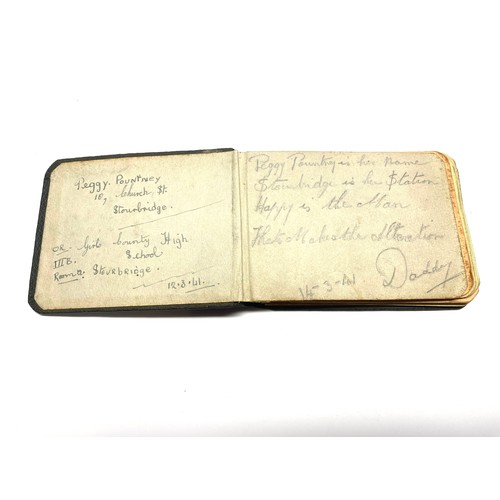 Peggy. Pountney
18, Church St.
Stourbridge.
OR Girls County High
IIIB. School
Room 11. Stourbridge.
12.3.41.
Peggy Pountny is her name
Stourbridge is her Station
Happy is the Man
That Makes the Alteration
Daddy
14-3-41